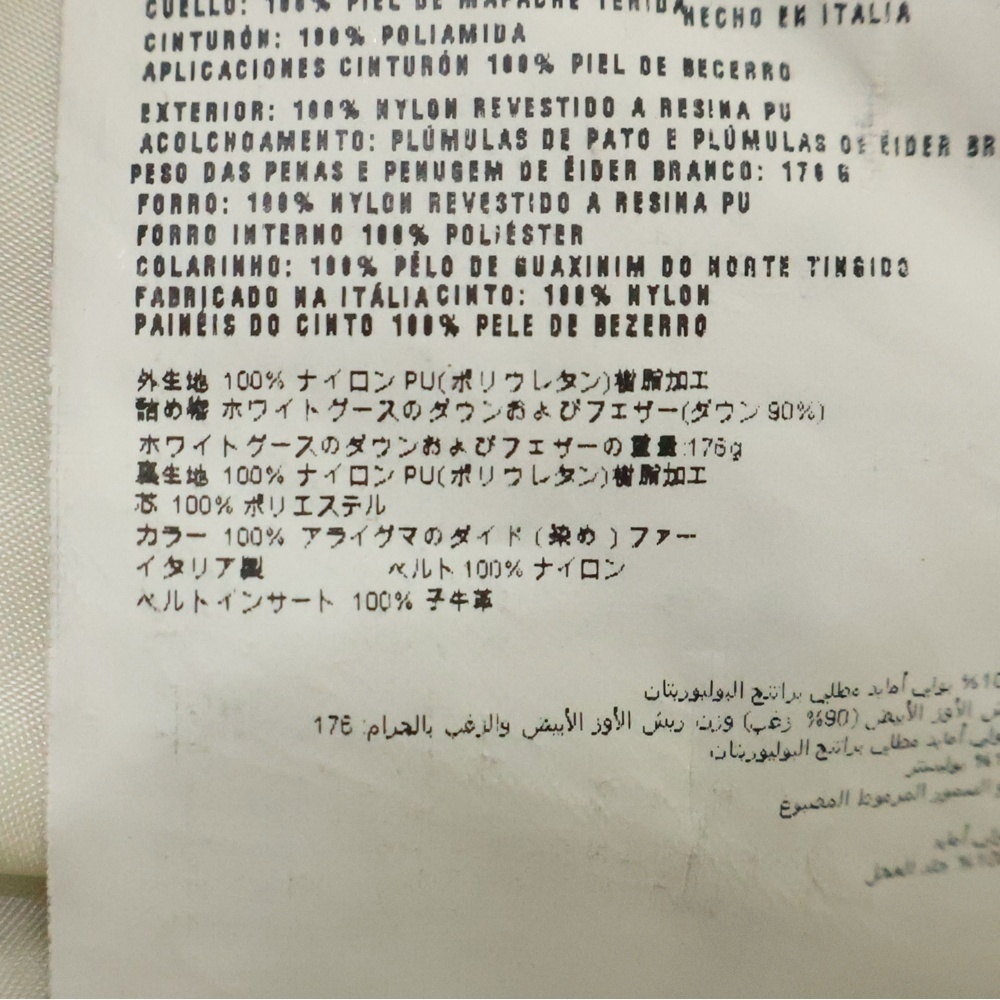 CUELLO: 100% PIEL DE MAPACHE TEÑIDA HECHO EN ITALIA
CINTURÓN: 100% POLIAMIDA
APLICACIONES CINTURÓN 100% PIEL DE BECERRO
EXTERIOR: 100% NYLON REVESTIDO A RESINA PU
ACOLCHOAMENTO: PLÚMULAS DE PATO E PLÚMULAS DE ÉIDER BR
PESO DAS PENAS E PENUGEM DE ÉIDER BRANCO: 176 G
FORRO: 100% NYLON REVESTIDO A RESINA PU
FORRO INTERNO 100% POLIÉSTER
COLARINHO: 100% PÊLO DE GUAXINIM DO NORTE TINGIDO
FABRICADO NA ITÁLIA CINTO: 100% NYLON
PAINÉIS DO CINTO 100% PELE DE BEZERRO
外生地 100% ナイロン PU(ポリウレタン)樹脂加工
詰め物 ホワイトグースのダウンおよびフェザー(ダウン 90%)
ホワイトグースのダウンおよびフェザーの重量:176g
裏生地 100% ナイロン PU(ポリウレタン)樹脂加工
芯 100% ポリエステル
カラー 100% アライグマのダイド(染め)ファー
イタリア製 ベルト 100% ナイロン
ベルトインサート 100% 子牛革
بولي أمايد مطلي براتنج البوليوريتان
الأوز الأبيض (90% زغب) وزن ريش الأوز الأبيض والزغب بالجرام: 176
أمايد مطلي براتنج البوليوريتان
بوليستر
السمور المرموط المصبوغ
أمايد
جلد العجل